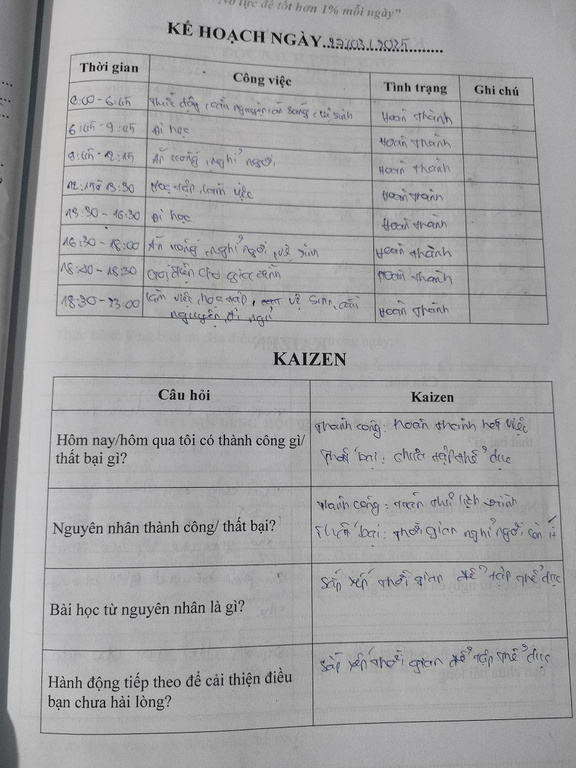 "Nỗ lực để tốt hơn 1% mỗi ngày"
KẾ HOẠCH NGÀY
Thời gian Công việc Tình trạng Ghi chú
Hoàn thành
6:45 - 9:45 Đi học Hoàn thành
Ăn uống, nghỉ ngơi Hoàn thành
Học tập, làm việc Hoàn thành
16:30 Đi học Hoàn thành
16:30 - 18:00 Ăn uống, nghỉ ngơi, vệ sinh Hoàn thành
18:00 - 18:30 Gọi điện cho gia đình Hoàn thành
18:30 - 23:00 Làm việc, học tập, vệ sinh, cầu Hoàn thành
nguyện, đi ngủ
KAIZEN
Câu hỏi Kaizen
Hôm nay/hôm qua tôi có thành công gì/
thất bại gì?
Thành công: Hoàn thành hết việc
Thất bại: chưa tập thể dục
Nguyên nhân thành công/ thất bại?
Thành công: tuân thủ lịch trình
Thất bại: thời gian nghỉ ngơi còn ít
Bài học từ nguyên nhân là gì?
Sắp xếp thời gian để tập thể dục
Hành động tiếp theo để cải thiện điều
bạn chưa hài lòng?
Sắp xếp thời gian để tập thể dục